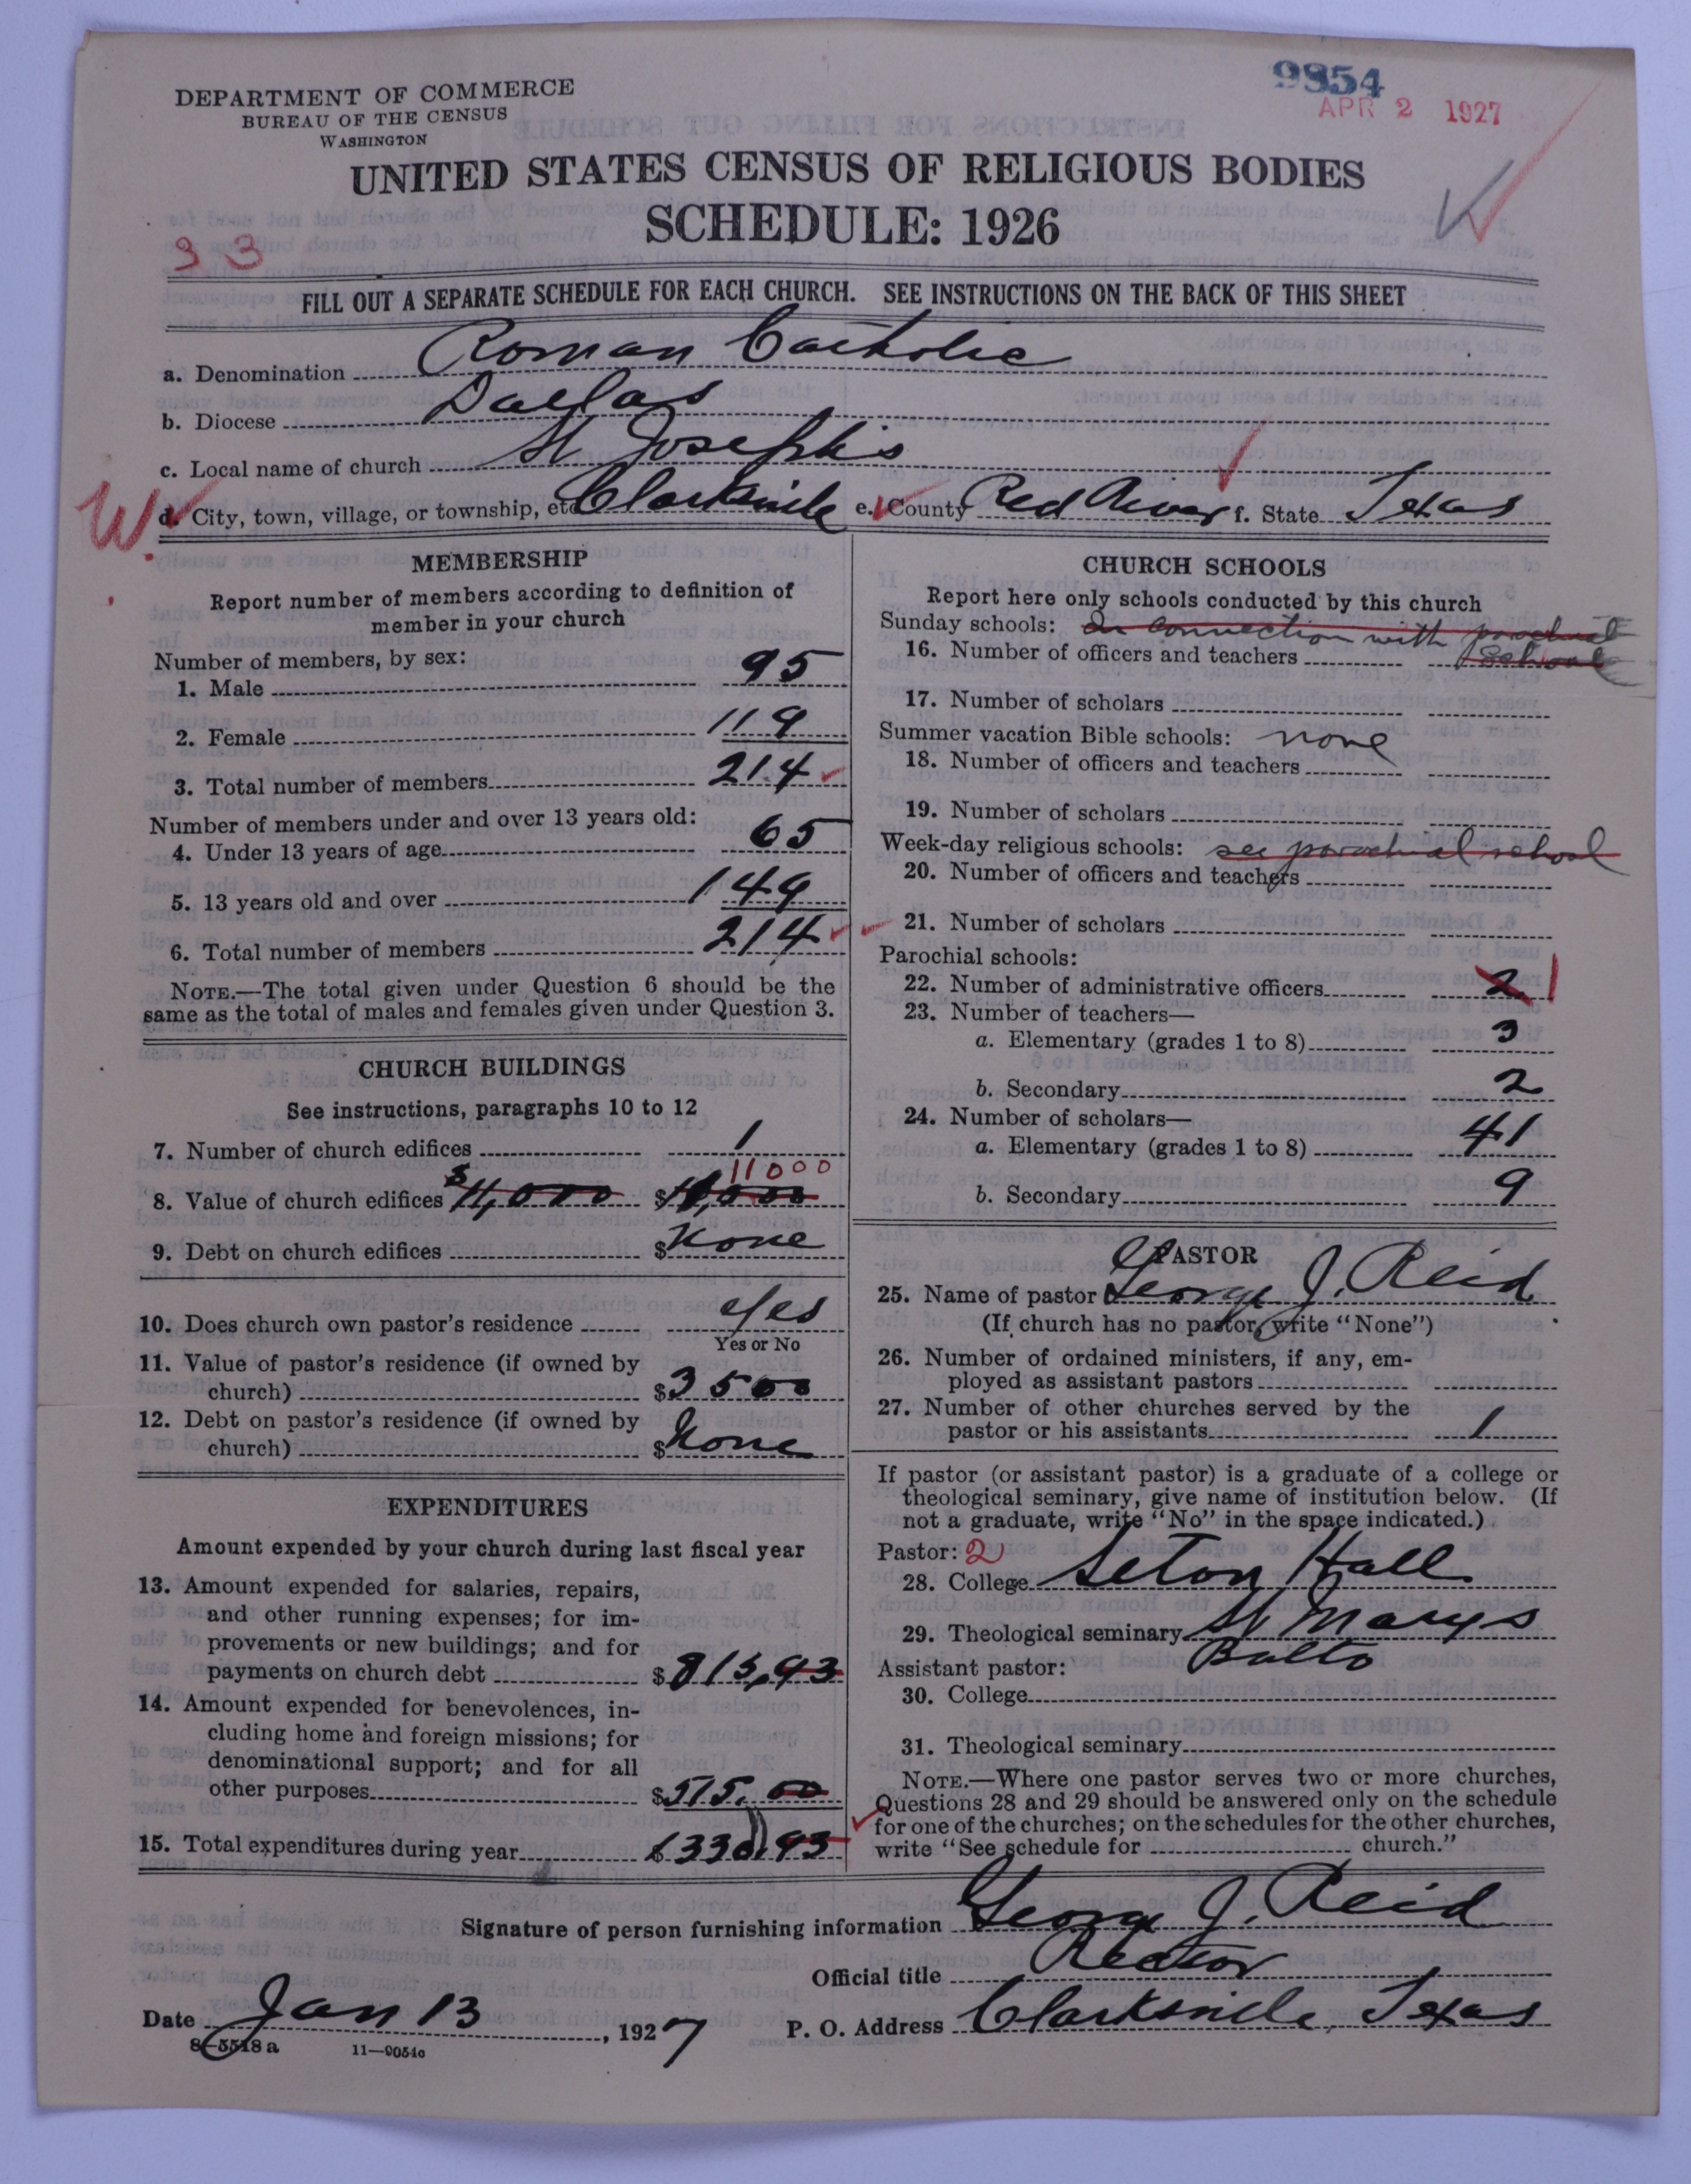 DEPARTMENT OF COMMERCE
BUREAU OF THE CENSUS
WASHINGTON
9854
APR 2 1927
UNITED STATES CENSUS OF RELIGIOUS BODIES
SCHEDULE: 1926
33
FILL OUT A SEPARATE SCHEDULE FOR EACH CHURCH. SEE INSTRUCTIONS ON THE BACK OF THIS SHEET
a. Denomination Roman Catholic
b. Diocese Dallas
c. Local name of church St Joseph's
W.
d. City, town, village, or township, etc Clarksville e. County Red River f. State Texas
MEMBERSHIP
Report number of members according to definition of
member in your church
Number of members, by sex:
1. Male 95
2. Female 119
3. Total number of members 214
Number of members under and over 13 years old:
4. Under 13 years of age 65
5. 13 years old and over 149
6. Total number of members 214
NOTE.—The total given under Question 6 should be the
same as the total of males and females given under Question 3.
CHURCH BUILDINGS
See instructions, paragraphs 10 to 12
7. Number of church edifices 1
11000
8. Value of church edifices $11,000 $11,000
9. Debt on church edifices $None
10. Does church own pastor's residence Yes
Yes or No
11. Value of pastor's residence (if owned by
church) $3500
12. Debt on pastor's residence (if owned by
church) $None
EXPENDITURES
Amount expended by your church during last fiscal year
13. Amount expended for salaries, repairs,
and other running expenses; for im-
provements or new buildings; and for
payments on church debt $815,93
14. Amount expended for benevolences, in-
cluding home and foreign missions; for
denominational support; and for all
other purposes $515.00
15. Total expenditures during year $330.93
CHURCH SCHOOLS
Report here only schools conducted by this church
Sunday schools: In connection with parochial
16. Number of officers and teachers school
17. Number of scholars
Summer vacation Bible schools: none
18. Number of officers and teachers
19. Number of scholars
Week-day religious schools: see parochial school
20. Number of officers and teachers
21. Number of scholars
Parochial schools:
22. Number of administrative officers 2 1
23. Number of teachers—
a. Elementary (grades 1 to 8) 3
b. Secondary 2
24. Number of scholars—
a. Elementary (grades 1 to 8) 41
b. Secondary 9
PASTOR
25. Name of pastor George J. Reid
(If church has no pastor, write "None")
26. Number of ordained ministers, if any, em-
ployed as assistant pastors
27. Number of other churches served by the
pastor or his assistants 1
If pastor (or assistant pastor) is a graduate of a college or
theological seminary, give name of institution below. (If
not a graduate, write "No" in the space indicated.)
Pastor: 2
28. College Seton Hall
29. Theological seminary St Marys
Balto
Assistant pastor:
30. College
31. Theological seminary
NOTE.—Where one pastor serves two or more churches,
Questions 28 and 29 should be answered only on the schedule
for one of the churches; on the schedules for the other churches,
write "See schedule for church."
Signature of person furnishing information George J. Reid
Official title Rector
Date Jan 13, 1927 P. O. Address Clarksville, Texas
8—5518a 11—9054c